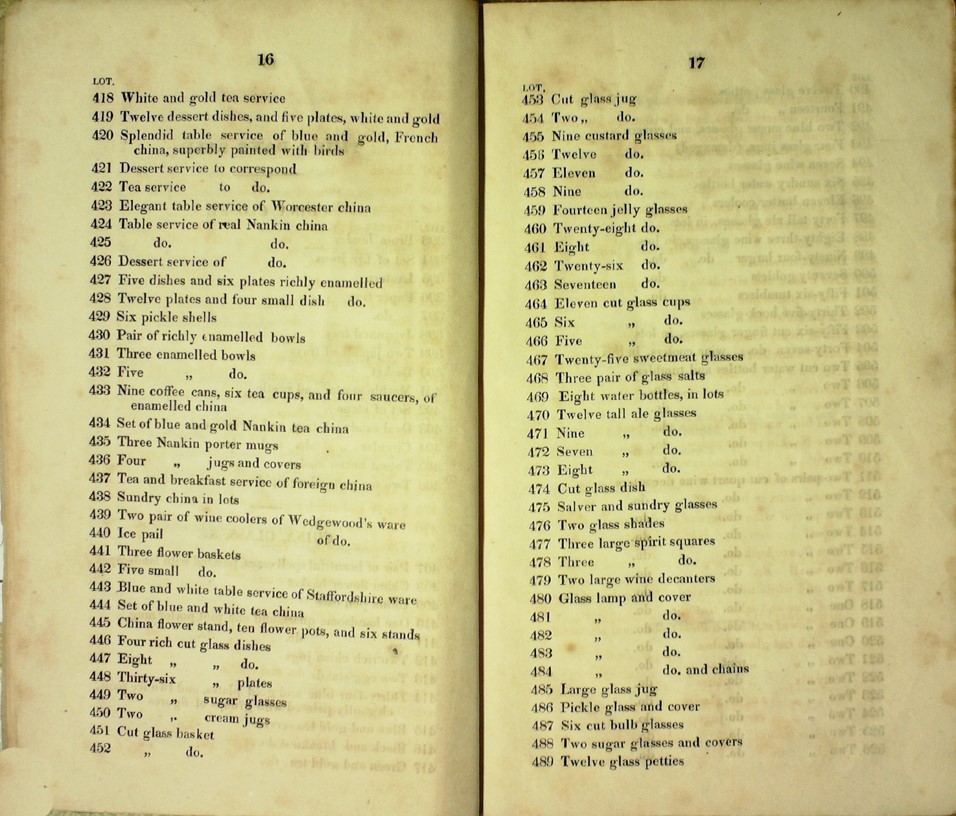 16
LOT.
418 White and gold tea service
419 Twelve dessert dishes, and five plates, white and gold
420 Splendid table service of blue and gold, French
china, superbly painted with birds
421 Dessert service to correspond
422 Tea service to do.
423 Elegant table service of Worcester china
424 Table service of real Nankin china
425 do. do.
426 Dessert service of do.
427 Five dishes and six plates richly enamelled
428 Twelve plates and four small dish do.
429 Six pickle shells
430 Pair of richly enamelled bowls
431 Three enamelled bowls
432 Five „ do.
433 Nine coffee cans, six tea cups, and four saucers, of
enamelled china
434 Set of blue and gold Nankin tea china
435 Three Nankin porter mugs
436 Four „ jugs and covers
437 Tea and breakfast service of foreign china
438 Sundry china in lots
439 Two pair of wine coolers of Wedgewood's ware
440 Ice pail of do.
441 Three flower baskets
442 Five small do.
443 Blue and white table service of Staffordshire ware
444 Set of blue and white tea china
445 China flower stand, ten flower pots, and six stands
446 Four rich cut glass dishes
447 Eight „ „ do.
448 Thirty-six „ plates
449 Two „ sugar glasses
450 Two „ cream jugs
451 Cut glass basket
452 „ do.
17
LOT.
453 Cut glass jug
454 Two „ do.
455 Nine custard glasses
456 Twelve do.
457 Eleven do.
458 Nine do.
459 Fourteen jelly glasses
460 Twenty-eight do.
461 Eight do.
462 Twenty-six do.
463 Seventeen do.
464 Eleven cut glass cups
465 Six „ do.
466 Five „ do.
467 Twenty-five sweetmeat glasses
468 Three pair of glass salts
469 Eight water bottles, in lots
470 Twelve tall ale glasses
471 Nine „ do.
472 Seven „ do.
473 Eight „ do.
474 Cut glass dish
475 Salver and sundry glasses
476 Two glass shades
477 Three large spirit squares
478 Three „ do.
479 Two large wine decanters
480 Glass lamp and cover
481 „ do.
482 „ do.
483 „ do.
484 „ do. and chains
485 Large glass jug
486 Pickle glass and cover
487 Six cut bulb glasses
488 Two sugar glasses and covers
489 Twelve glass petties